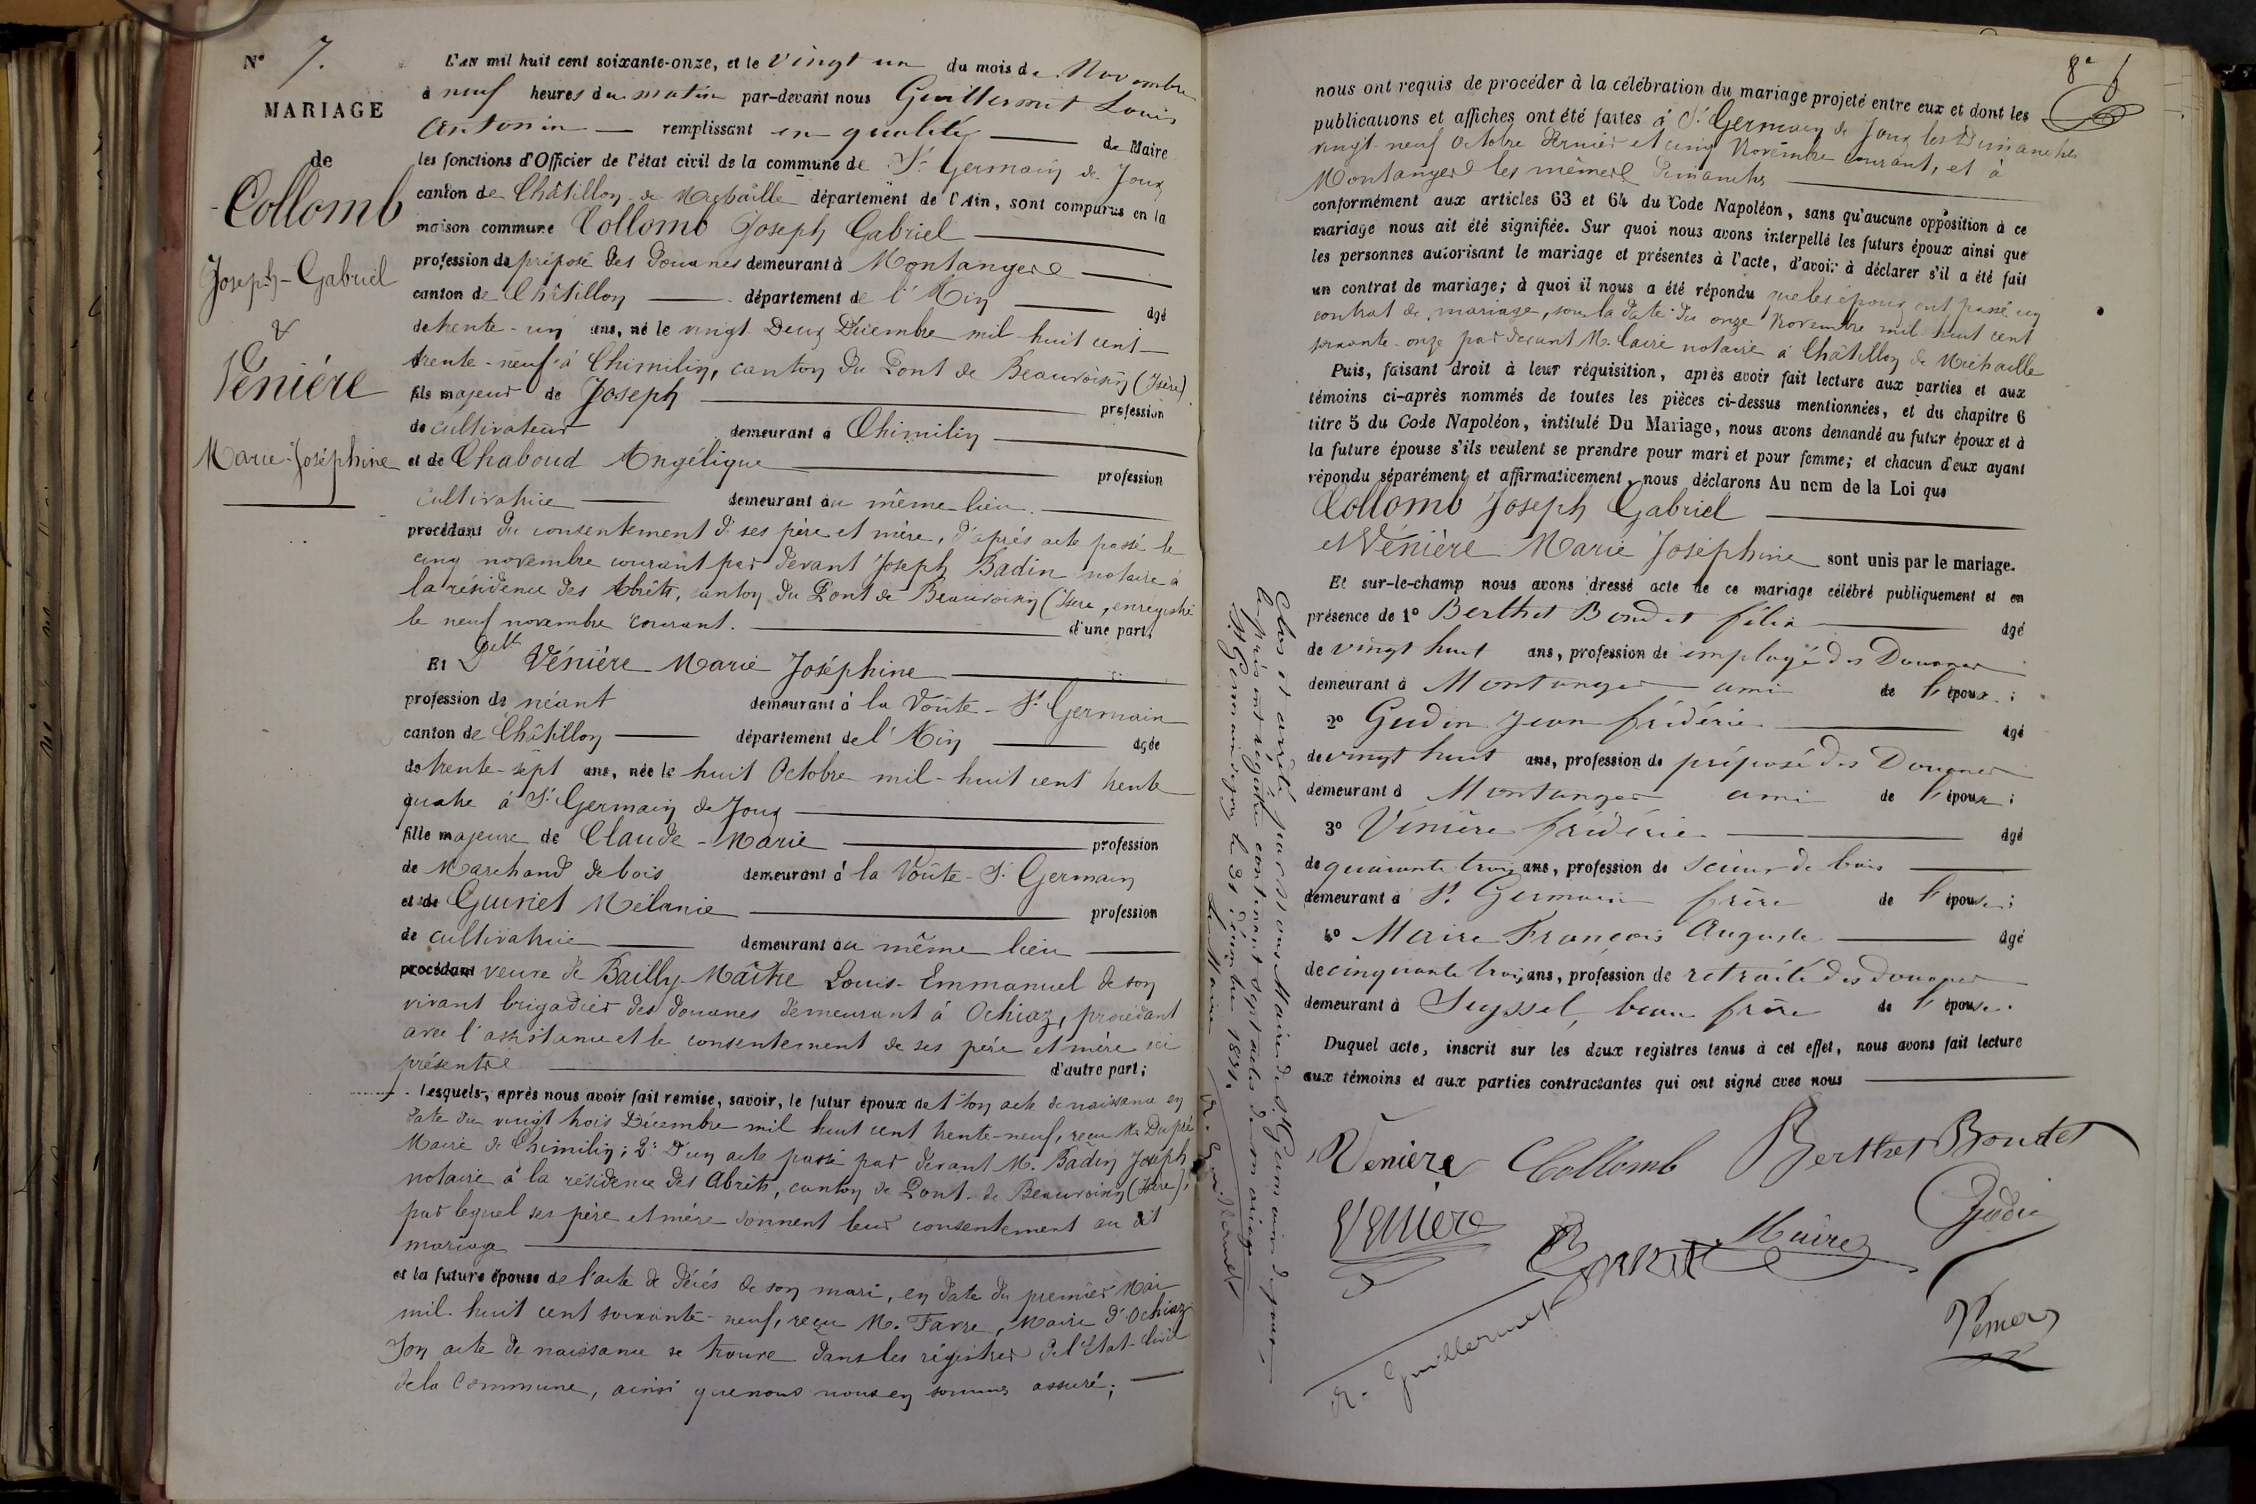 N° 7.
MARIAGE
de
Collomb
Joseph-Gabriel
&
Vénière
Marie-Joséphine
L'an mil huit cent soixante-onze, et le vingt un du mois de Novembre
à neuf heures du matin par-devant nous Guillermet Louis
Antonin — remplissant en qualité — de Maire
les fonctions d'Officier de l'état civil de la commune de St Germain de Joux
canton de Châtillon de Michaille département de l'Ain, sont comparus en la
maison commune Collomb Joseph Gabriel
profession de préposé des Douanes demeurant à Montanges
canton de Châtillon — département de l'Ain — âgé
de trente-un ans, né le vingt Deux Décembre mil huit cent
trente-neuf à Chimilin, canton du Pont de Beauvoisin (Isère)
fils majeur de Joseph — profession
de cultivateur demeurant à Chimilin
et de Chaboud Angélique — profession
cultivatrice — demeurant au même lieu.
procédant du consentement d ses père et mère, d'après acte passé le
cinq novembre courant par devant Joseph Badin notaire à
la résidence des Abrêts, canton du Pont de Beauvoisin (Isère, enregistré
le neuf novembre courant. — d'une part;
Et Delle Vénière Marie Joséphine
profession de néant demeurant à la Voûte-St Germain
canton de Châtillon — département de l'Ain — âgée
de trente-sept ans, née le huit Octobre mil-huit cent trente
quatre à St Germain de Joux
fille majeure de Claude-Marie — profession
de Marchand de bois demeurant à la Voûte-St Germain
et de Guiriet Mélanie — profession
de cultivatrice — demeurant au même lieu
procédant veuve de Bailly-Maître Louis-Emmanuel de son
vivant brigadier des douanes demeurant à Ochiaz, procédant
avec l'assistance et le consentement de ses père et mère ici
présents — d'autre part;
Lesquels, après nous avoir fait remise, savoir, le futur époux de 1° son acte de naissance en
date du vingt trois Décembre mil huit cent trente-neuf, reçu Mr Dupré
Maire de Chimilin; 2° D'un acte passé par devant M. Badin Joseph
notaire à la résidence des Abrêts, canton de Pont-de Beauvoisin (Isère),
par lequel ses père et mère donnent leur consentement au dit
mariage
et la future épouse de l'acte de décés de son mari, en date du premier Mai
mil-huit cent soixante-neuf, reçu M. Favre, Maire d'Ochiaz
Son acte de naissance se trouve dans les régistres de l'Etat-Civil
de la Commune, ainsi que nous nous en sommes assuré;
8e f
nous ont requis de procéder à la célébration du mariage projeté entre eux et dont les
publications et affiches ont été faites à St Germain de Joux les Dimanches
vingt-neuf Octobre dernier et cinq Novembre courant, et à
Montanges les mêmes Dimanches
conformément aux articles 63 et 64 du Code Napoléon, sans qu'aucune opposition à ce
mariage nous ait été signifiée. Sur quoi nous avons interpellé les futurs époux ainsi que
les personnes autorisant le mariage et présentes à l'acte, d'avoir à déclarer s'il a été fait
un contrat de mariage; à quoi il nous a été répondu que les époux ont passé un
contrat de mariage, sous la date du onze Novembre mil huit cent
soixante-onze par devant M. Caire notaire à Châtillon de Michaille
Puis, faisant droit à leur réquisition, après avoir fait lecture aux parties et aux
témoins ci-après nommés de toutes les pièces ci-dessus mentionnées, et du chapitre 6
titre 5 du Code Napoléon, intitulé Du Mariage, nous avons demandé au futur époux et à
la future épouse s'ils veulent se prendre pour mari et pour femme; et chacun d'eux ayant
répondu séparément et affirmativement, nous déclarons Au nom de la Loi que
Collomb Joseph Gabriel
et Vénière Marie Joséphine sont unis par le mariage.
Et sur-le-champ nous avons dressé acte de ce mariage célébré publiquement et en
présence de 1° Berthet Bondet félix — âgé
de vingt huit ans, profession de employé des Douanes
demeurant à Montanges ami de l'époux;
2° Gudin Jean frédéric — âgé
de vingt huit ans, profession de préposé des Douanes
demeurant à Montanges ami de l'époux;
3° Vénière frédéric — âgé
de quarante trois ans, profession de scieur de bois
demeurant à St Germain frère de l'épouse;
4° Maire François Auguste — âgé
de cinquante trois ans, profession de retraité des Douanes
demeurant à Seyssel, beau frère de l'épouse.
Duquel acte, inscrit sur les deux registres tenus à cet effet, nous avons fait lecture
aux témoins et aux parties contractantes qui ont signé avec nous
Clos et arrêté par nous Maire de St Germain de Joux
le présent registre contenant sept actes de mariage
St Germain de Joux le 31 décembre 1871.
Le Maire
A. Guillermet
Vénière Collomb Berthet Bondet
Vénière Maire Gudin
A. Guillermet